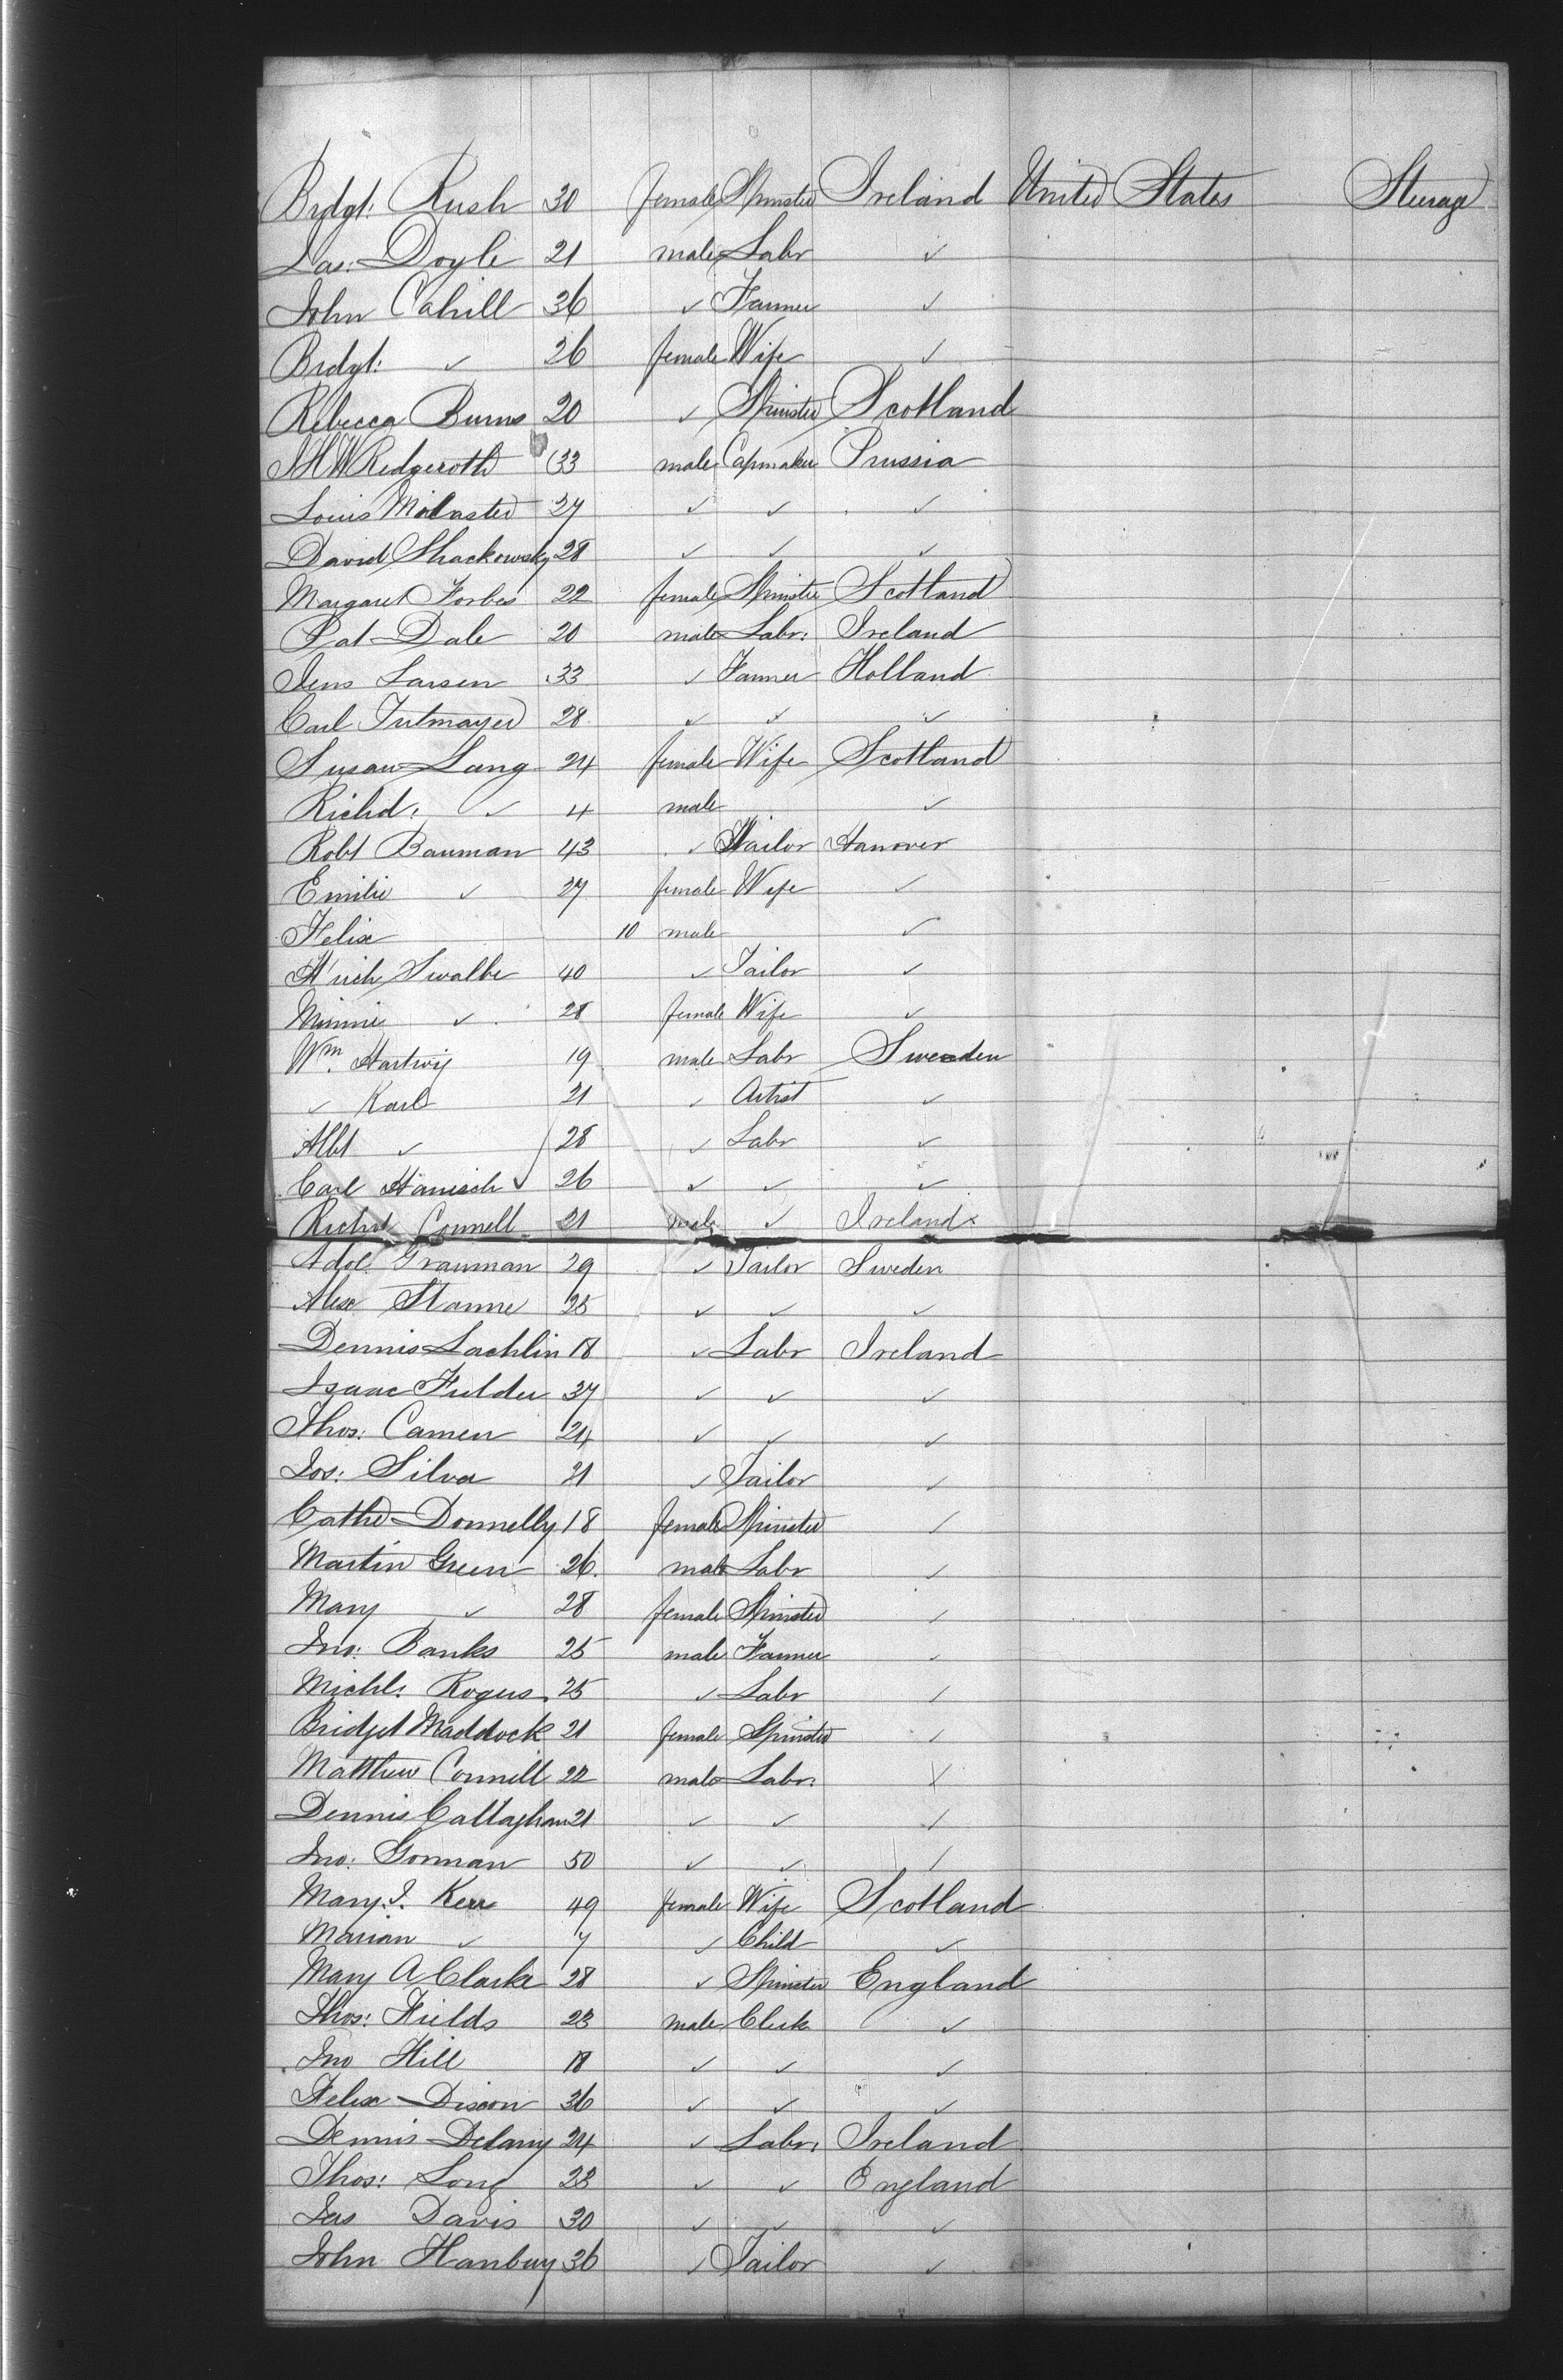 Brdgt: Rush 30 female Spinster Ireland United States Sterage
Jas: Doyle 21 male Labr ✓
John Cahill 36 ✓ Farmer ✓
Brdgt: ✓ 26 female Wife ✓
Rebecca Burns 20 ✓ Spinster Scotland
33 male Capmaker Prussia
Louis 27 ✓ ✓ ✓
David Shackowsky 28 ✓ ✓ ✓
Margaret Forbes 22 female Spinster Scotland
Pat Dale 20 male Labr: Ireland
Jens Larsen 33 ✓ Farmer Holland
Carl Tutmayer 28 ✓ ✓ ✓
Susan Lang 24 female Wife Scotland
Richd: ✓ 4 male ✓
Robt Bauman 43 ✓ Tailor Hanover
Emilie ✓ 27 female Wife ✓
Felix 10 male ✓
H'rich Swalbe 40 ✓ Tailor ✓
Minnie ✓ 28 female Wife ✓
Wm. Hartwig 19 male Labr Sweden
✓ Karl 21 ✓ Artist ✓
Albt ✓ 28 ✓ Labr ✓
Carl Hanisch 26 ✓ ✓ ✓
Richd Connell 21 male ✓ Ireland
Adol. Grauman 29 ✓ Tailor Sweden
Alex Stamme 25 ✓ ✓ ✓
Dennis Lachlin 18 ✓ Labr Ireland
Isaac Fielder 37 ✓ ✓ ✓
Thos: Camen 24 ✓ ✓ ✓
Jos: Silva 21 ✓ Tailor ✓
Cathe Donnelly 18 female Spinster ✓
Martin Green 26. male Labr ✓
Mary ✓ 28 female Spinster ✓
Jno: Banks 25 male Farmer ✓
Michl: Rogers 25 ✓ Labr ✓
Bridget Maddock 21 female Spinster ✓
Matthew Connell 22 male Labr: ✓
Dennis Callaghan 21 ✓ ✓ ✓
Jno: Gorman 50 ✓ ✓ ✓
Mary J. Kerr 49 female Wife Scotland
Marian ✓ 7 ✓ Child ✓
Mary A Clarke 28 ✓ Spinster England
Thos: Fields 23 male Clerk ✓
Jno Hill 18 ✓ ✓ ✓
Felix Dixon 36 ✓ ✓ ✓
Dennis Delany 24 ✓ Labr: Ireland
Thos: Long 23 ✓ ✓ England
Jas Davis 30 ✓ ✓ ✓
John Hanbury 36 ✓ Tailor ✓